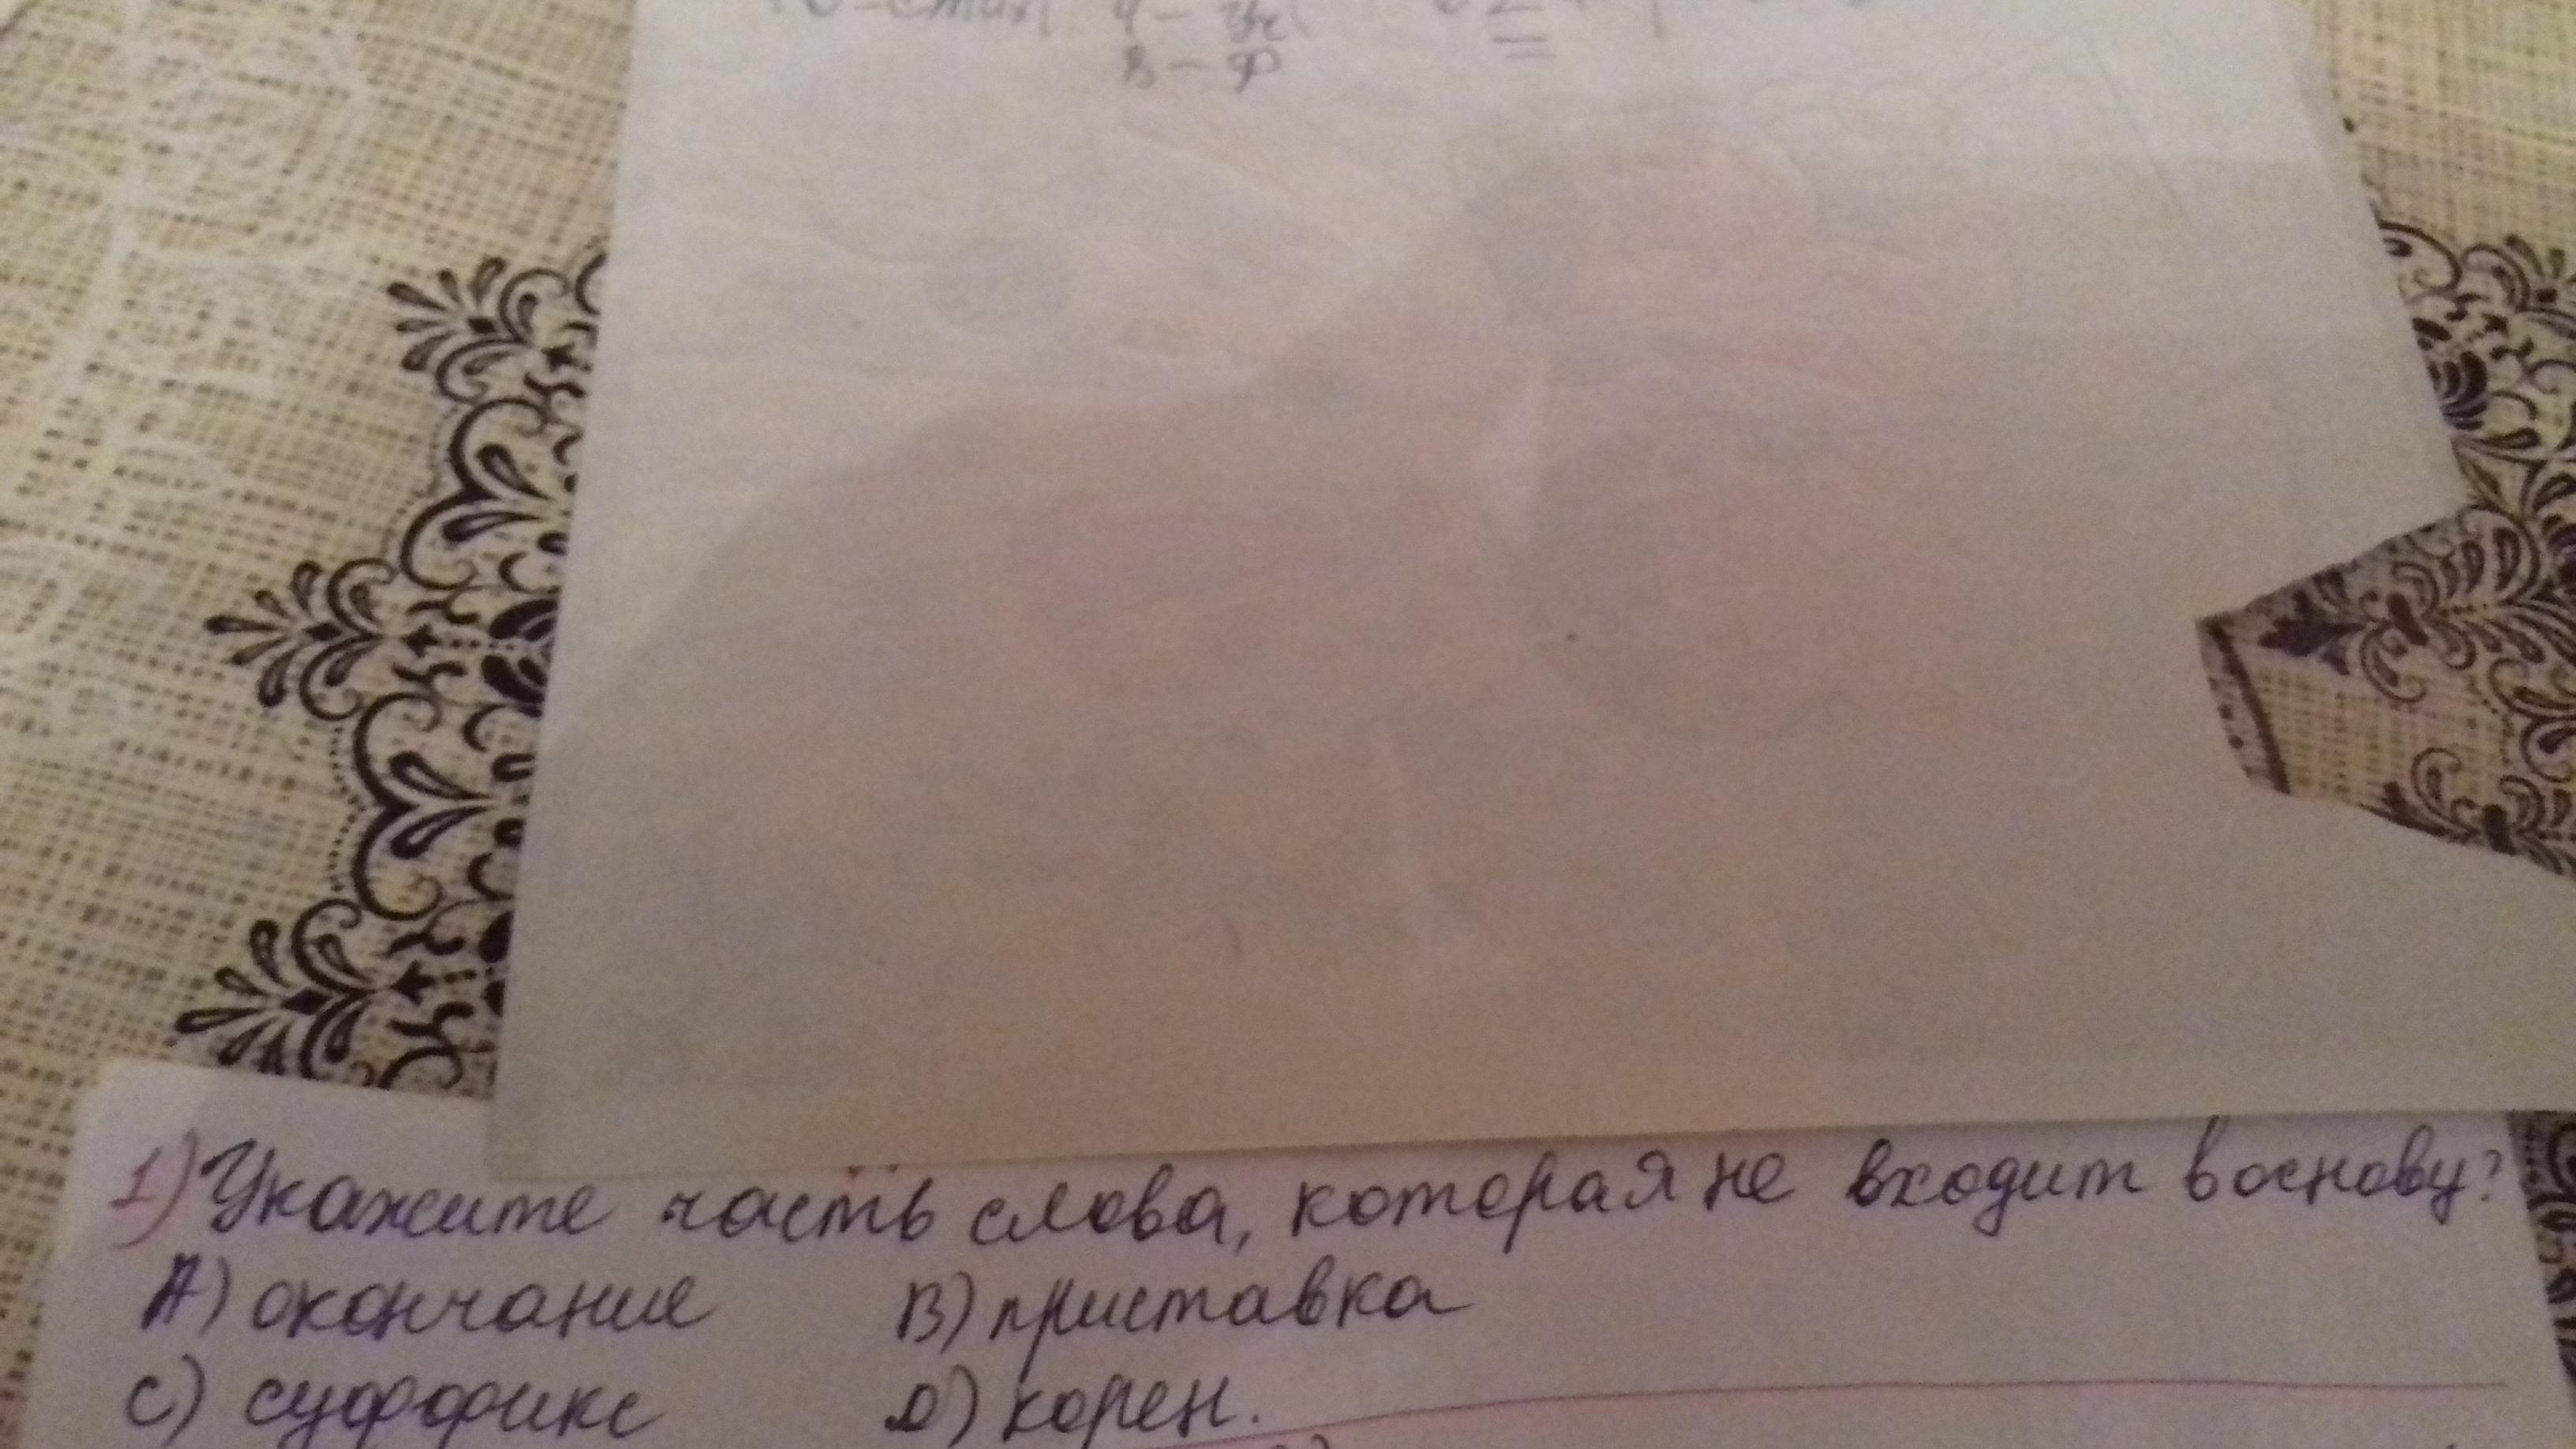 1) Укажите часть слова, которая не входит в основу?
А) окончание В) приставка
С) суффикс Д) корен.